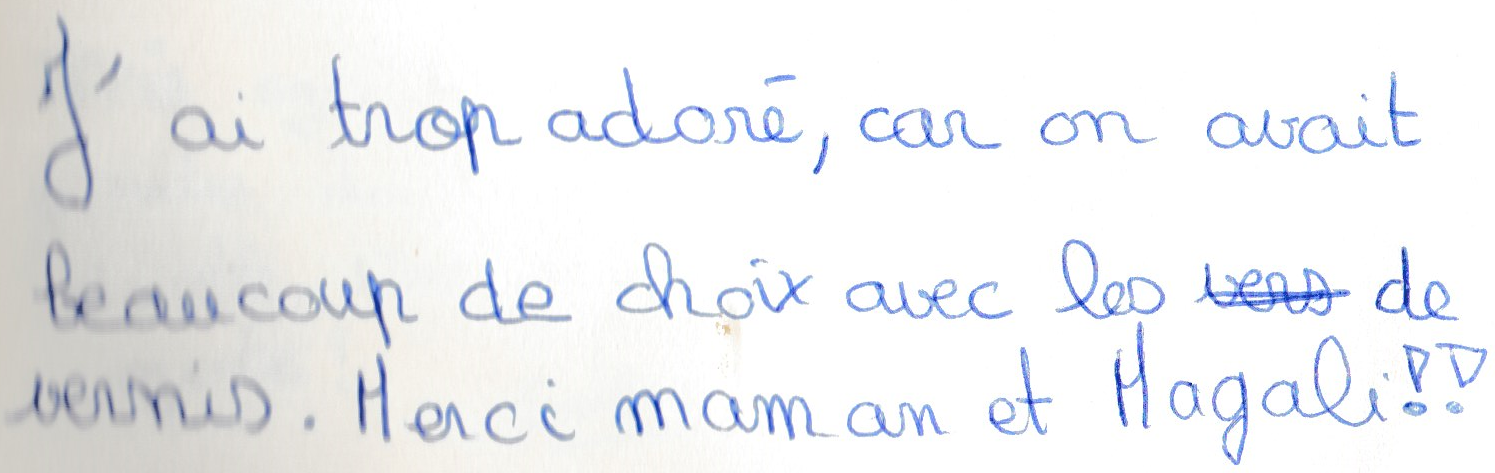 J'ai trop adoré, car on avait
beaucoup de choix avec les de
vernis. Merci maman et Magali!!